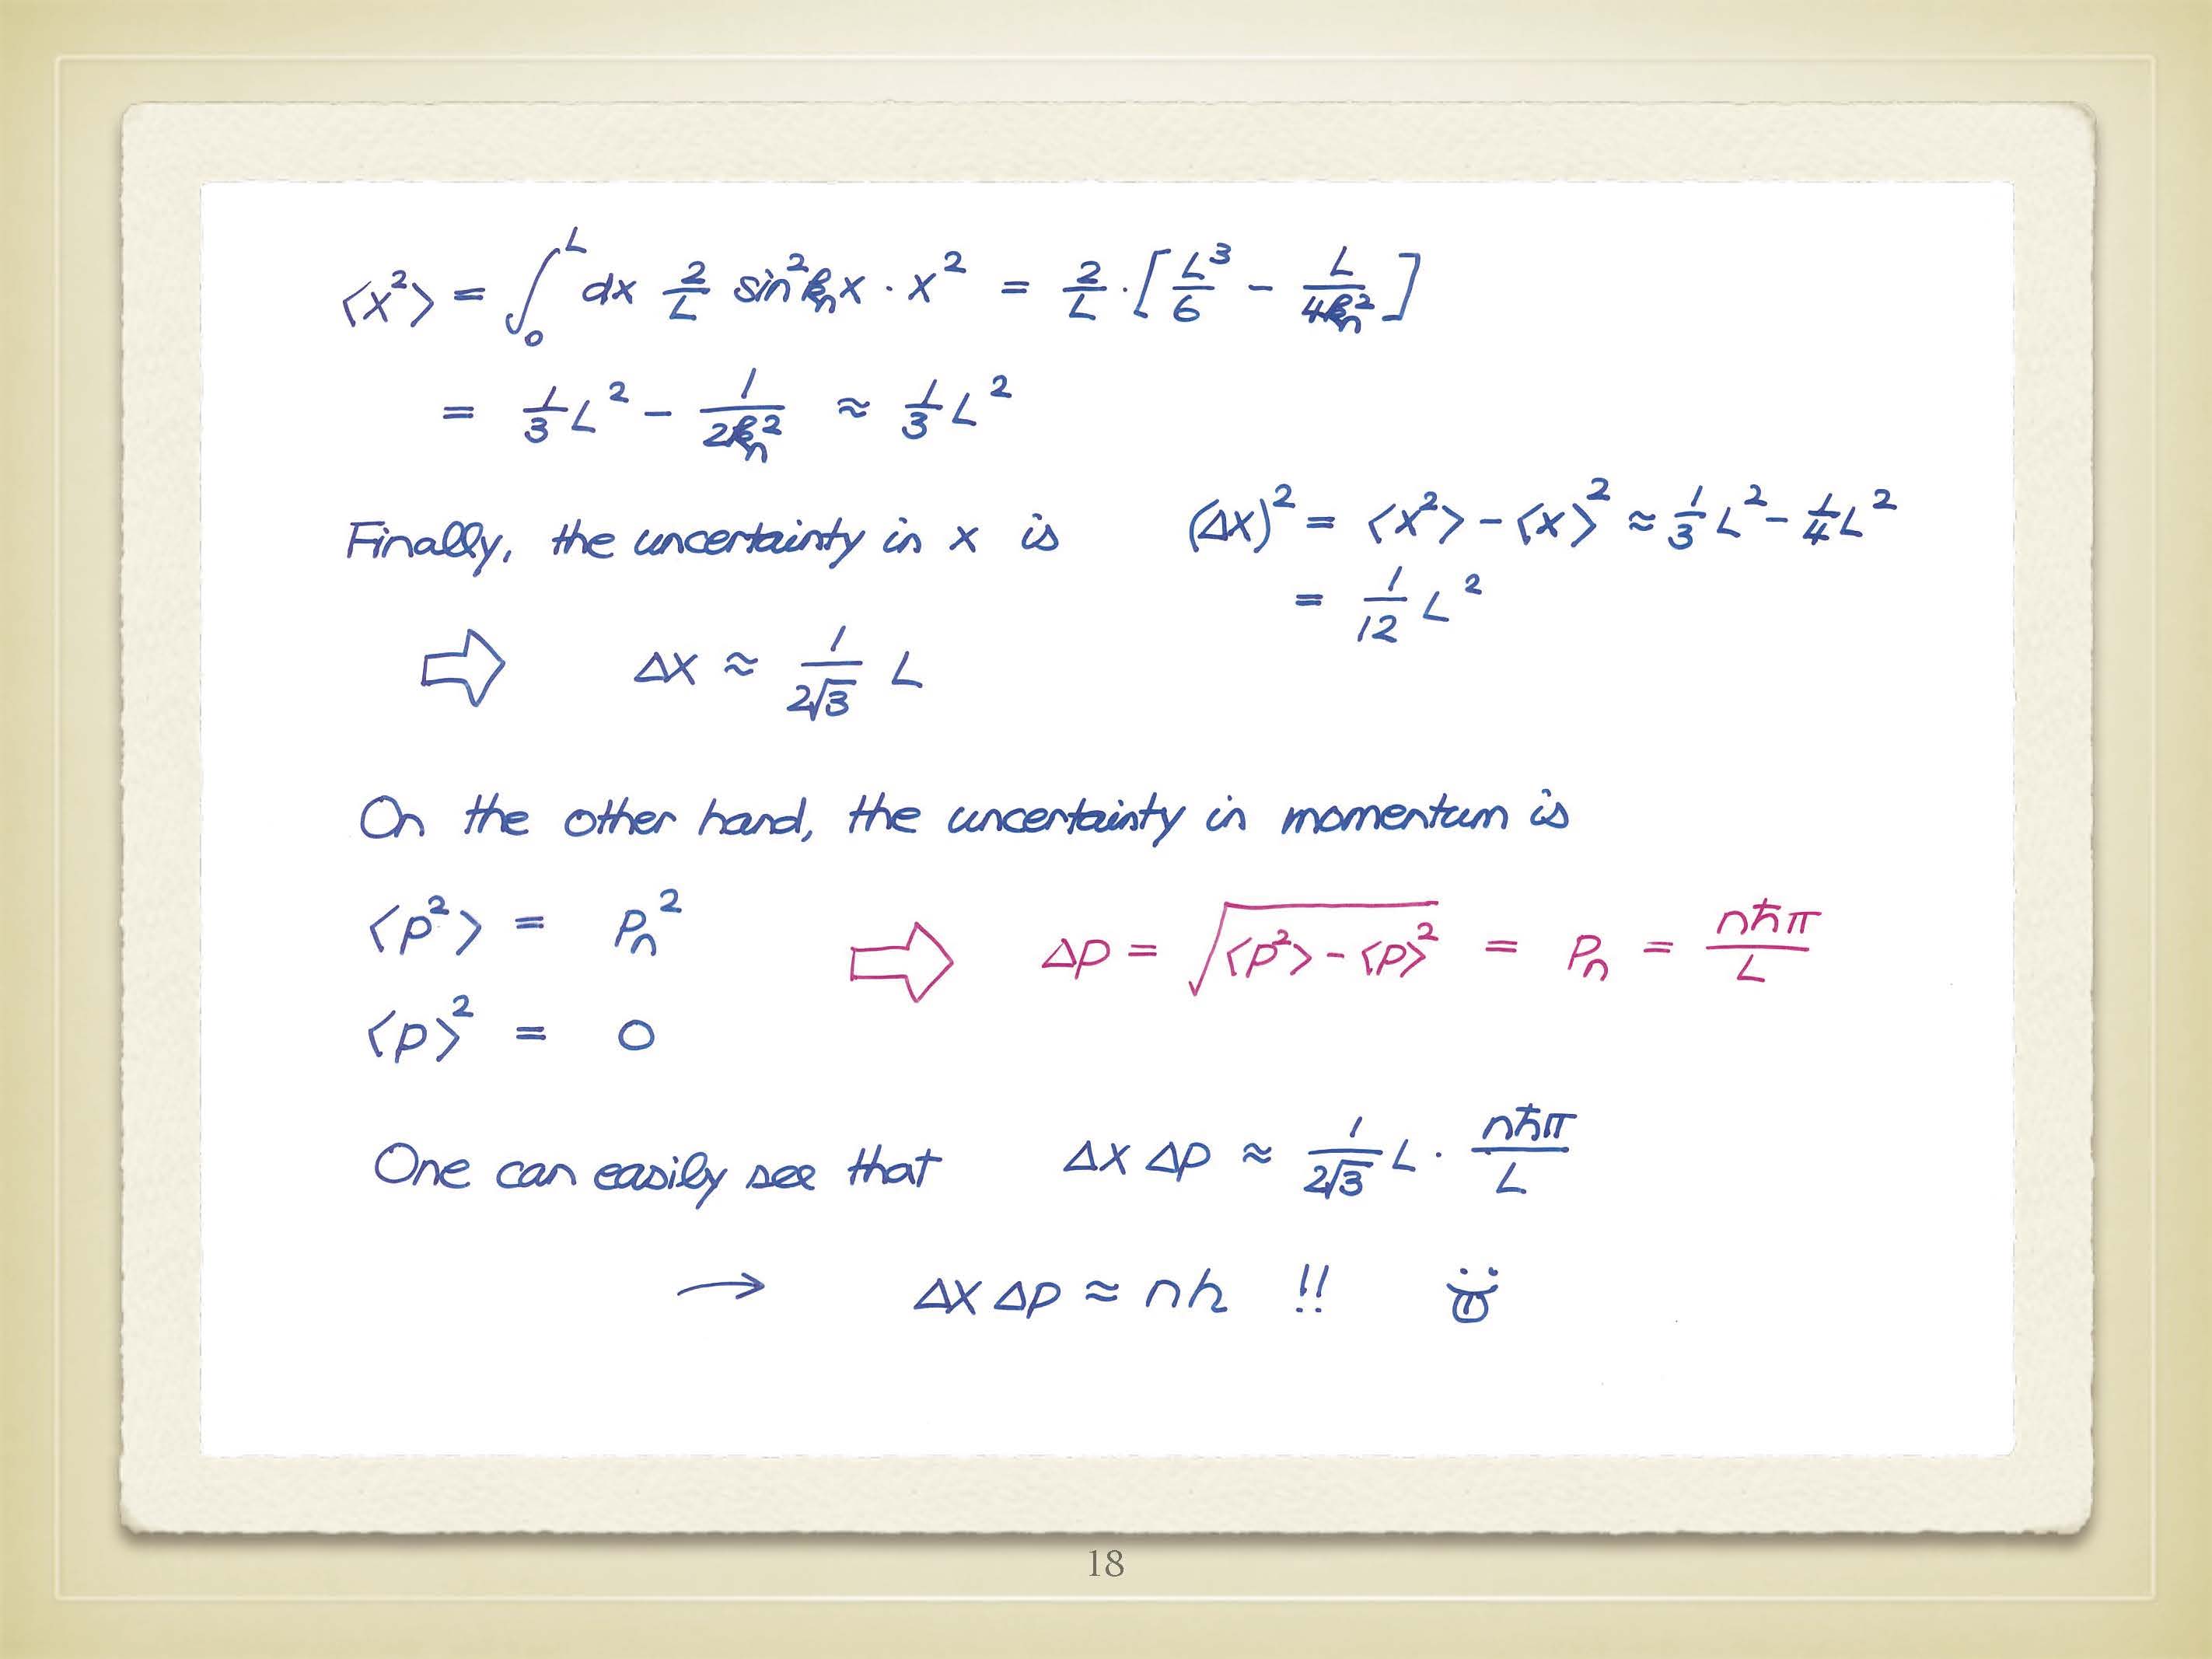 ⟨x²⟩ = ∫₀ᴸ dx 2/L sin²kₙx · x² = 2/L · [L³/6 − L/4kₙ²]
= 1/3 L² − 1/2kₙ² ≈ 1/3 L²
Finally, the uncertainty in x is (Δx)² = ⟨x²⟩ − ⟨x⟩² ≈ 1/3 L² − 1/4 L²
= 1/12 L²
⇨ Δx ≈ 1/2√3 L
On the other hand, the uncertainty in momentum is
⟨p²⟩ = pₙ² ⇨ Δp = √(⟨p²⟩ − ⟨p⟩²) = pₙ = nħπ/L
⟨p⟩² = 0
One can easily see that Δx Δp ≈ 1/2√3 L · nħπ/L
→ Δx Δp ≈ nh !!
18